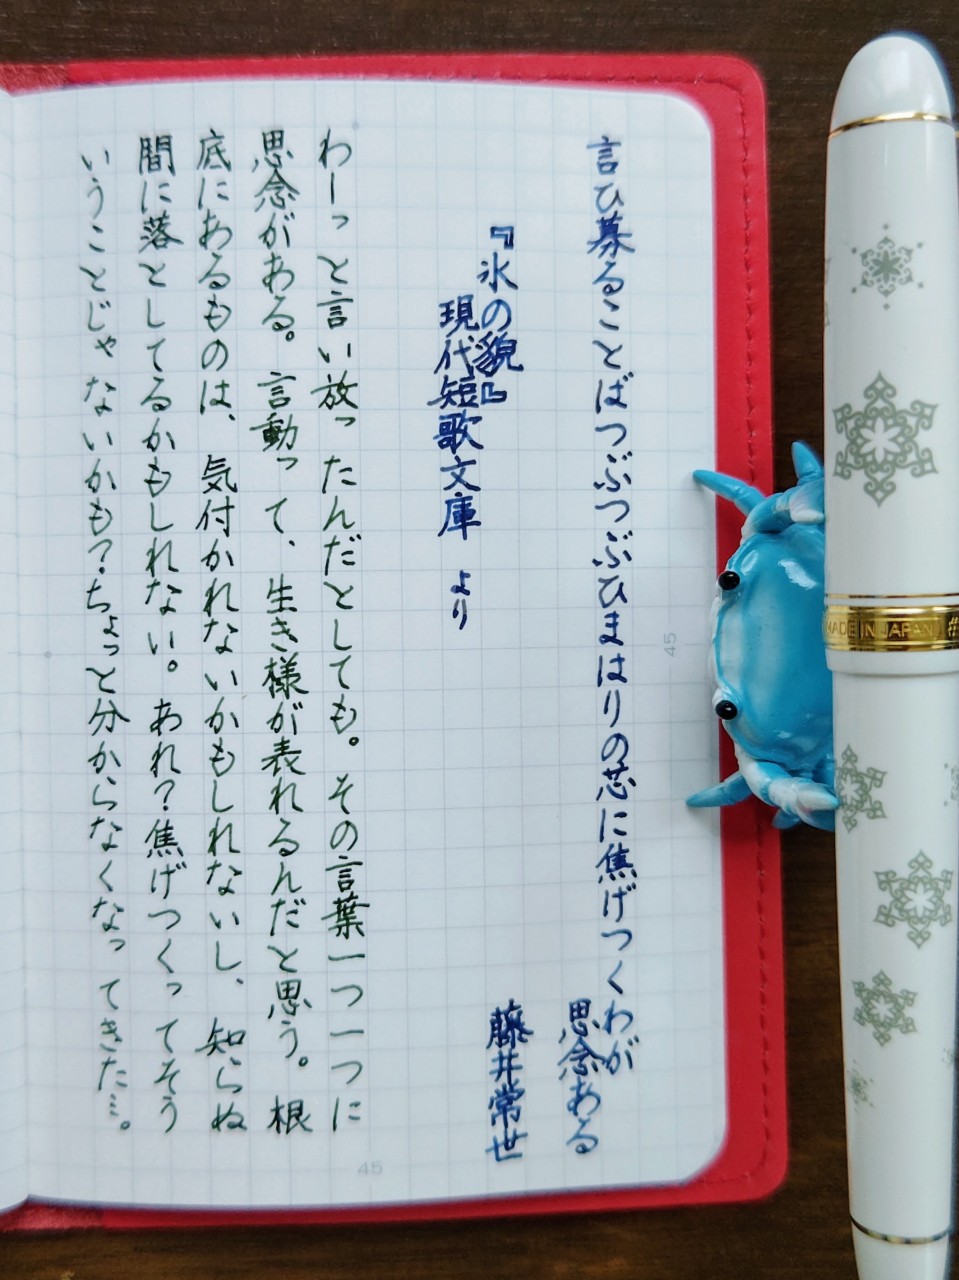 言ひ募ることばつぶつぶひまはりの芯に焦げつくわが
思念ある
藤井常世
『氷の貌』
現代短歌文庫 より
わーっと言い放ったんだとしても。その言葉一つ一つに
思念がある。言動って、生き様が表れるんだと思う。根
底にあるものは、気付かれないかもしれないし、知らぬ
間に落としてるかもしれない。あれ?焦げつくってそう
いうことじゃないかも?ちょっと分からなくなってきた…。
45
45
MADE IN JAPAN #